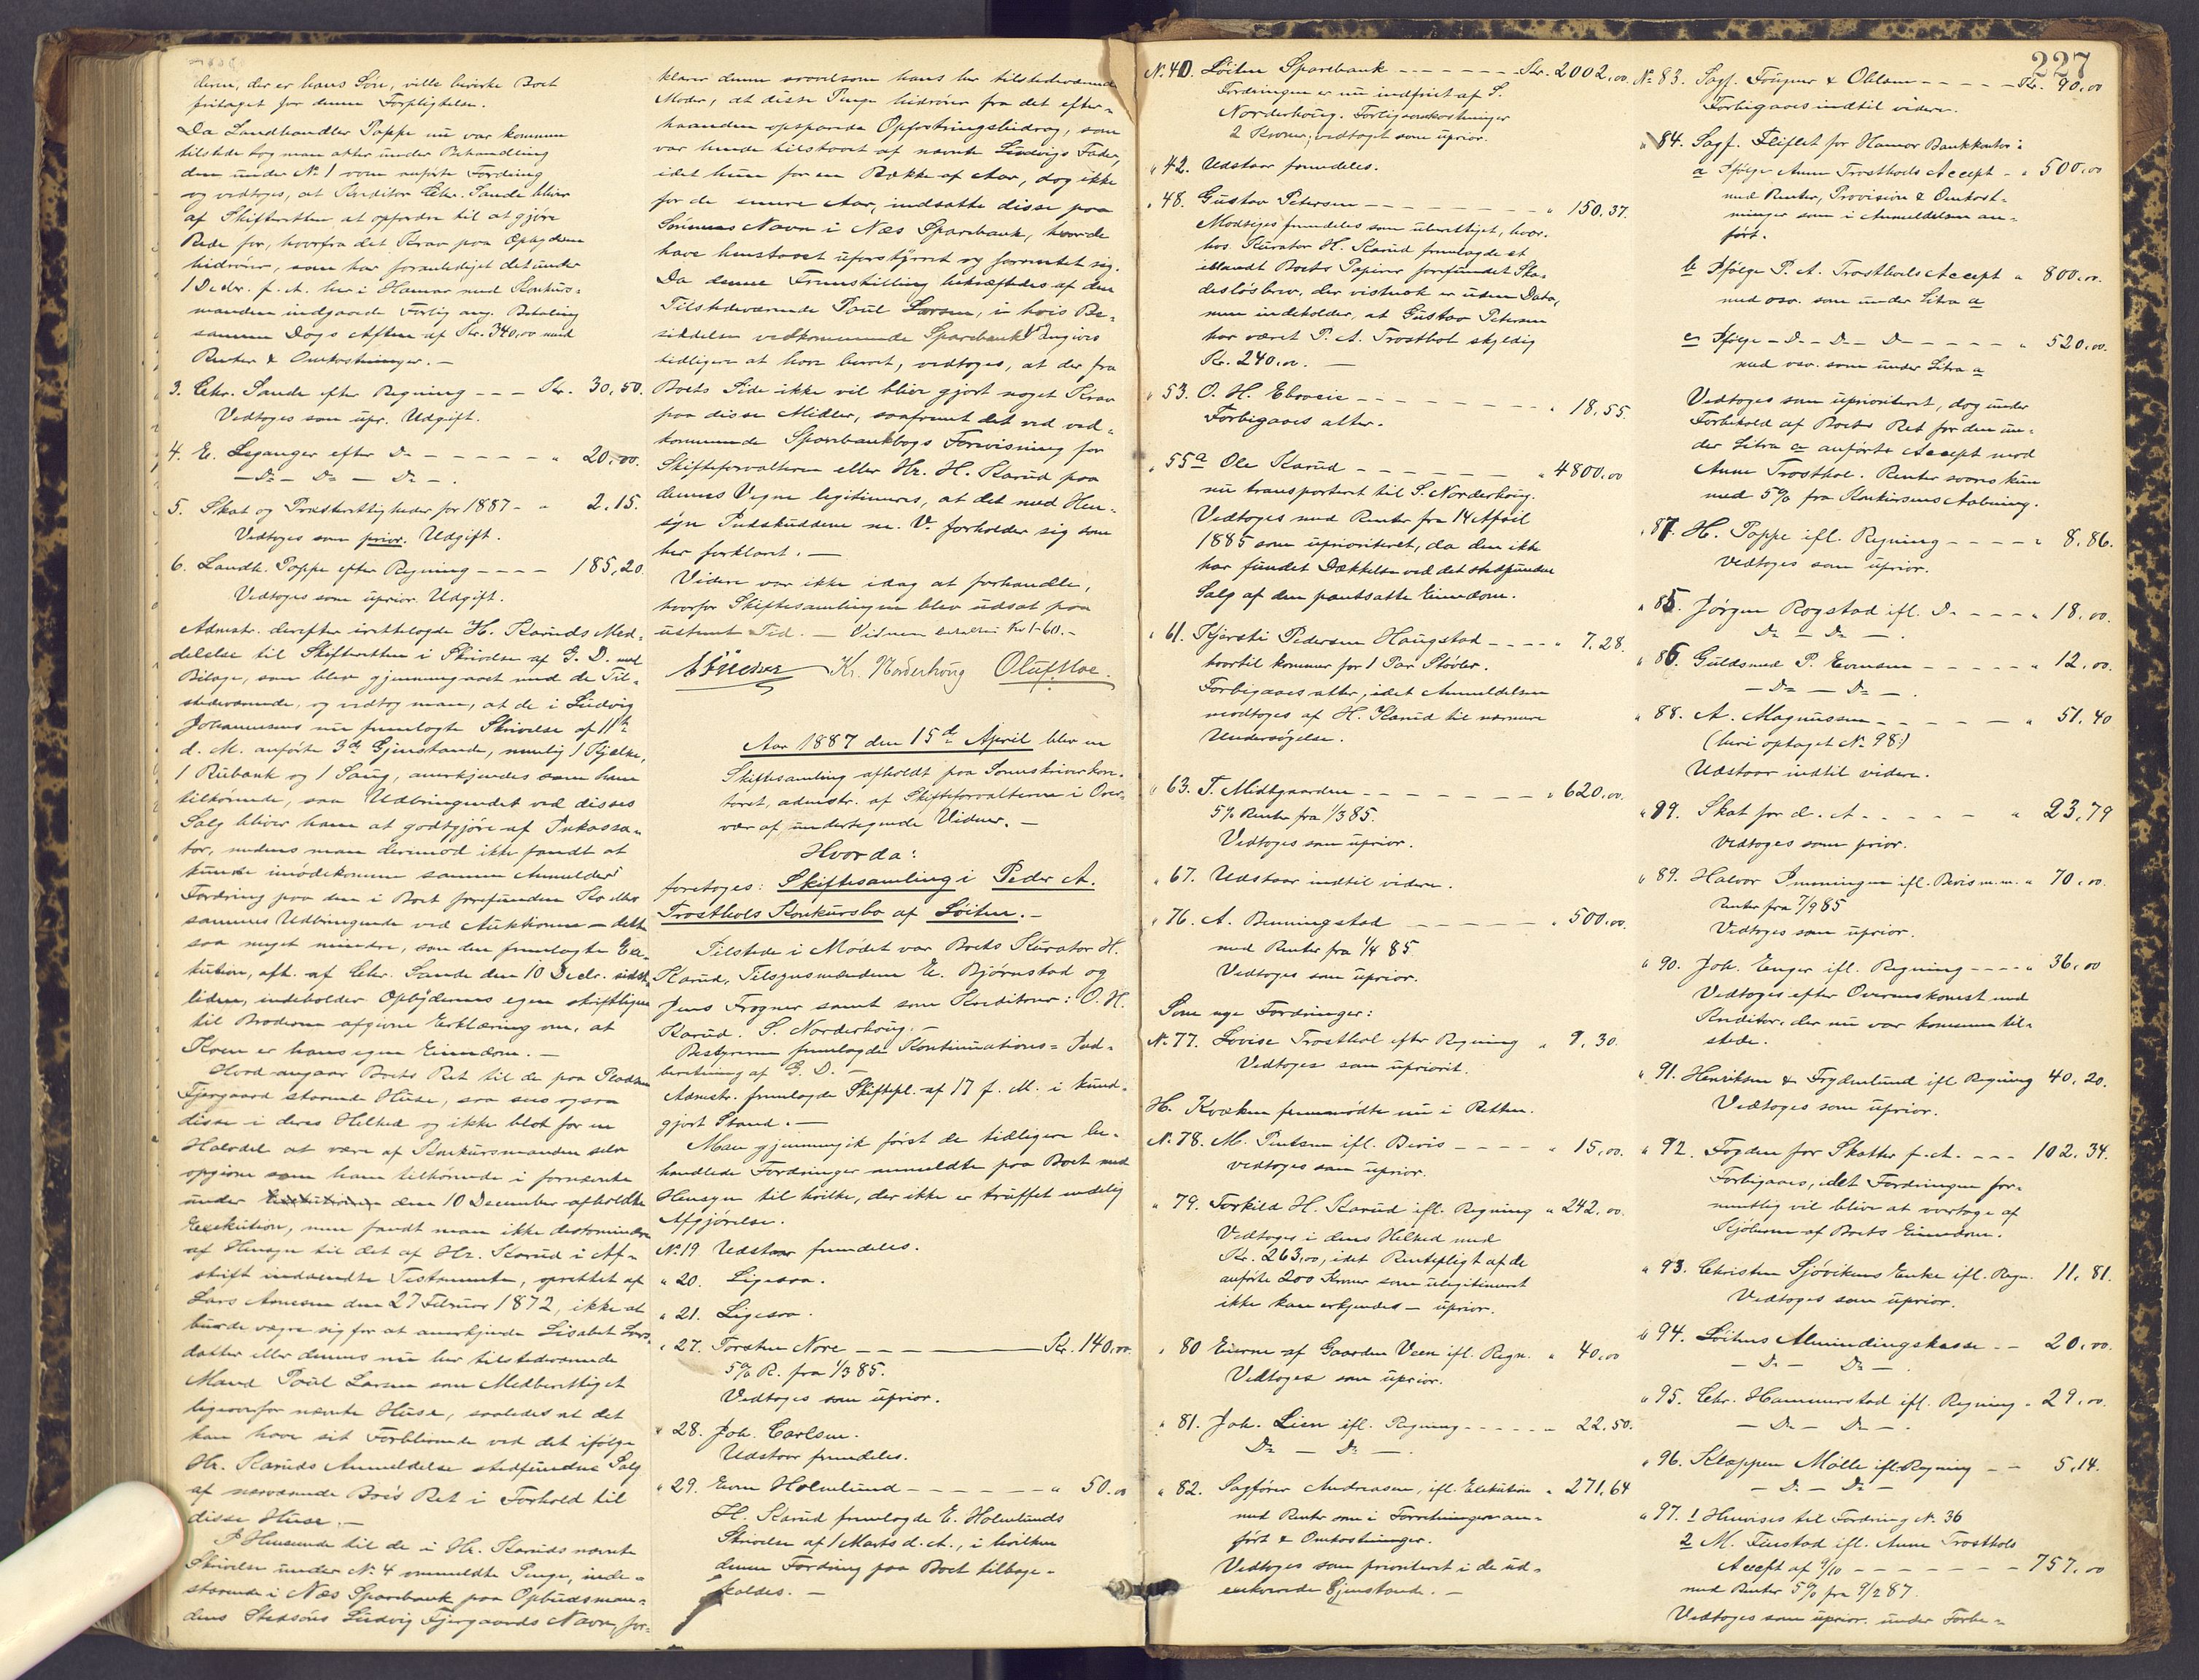 deren, der er hans Søn, ville bevirke Boet
fritaget for denne Forpligtelse.
Da Landhandler Poppe nu var kommen
tilstede tog man atter under Behandling
den under No 1 oven anførte Fordring
og vedtoges, at Kreditor Chr. Sande bliver
af Skifteretten at opfordre til at gjøre
Rede for, hvorfra det Krav paa Opbyderen
hidrører, som har foranlediget det under
1 Decbr. f. A. her i Hamar med Konkurs-
manden indgaaede Forlig ang. Betaling
samme Dags Aften af Kr. 340,00 med
Renter & Omkostninger. —
3. Chr. Sande efter Regning - - - Kr. 30,50.
Vedtoges som upr. Udgift.
4. E. Leganger efter Do - - - - - " 20,00.
— Do — Do — Do —.
5. Skat og Præsterettigheder for 1887 - " 2,15.
Vedtoges som prior. Udgift.
6. Landh. Poppe efter Regning - - - - 185,20
Vedtoges som uprior. Udgift.
Admstr. derefter irettelagde H. Karuds Med-
delelse til Skifteretten i Skrivelse af G. D. med
Bilage, som blev gjennemgaaet med de Til-
stedeværende, og vedtog man, at de i Ludvig
Johannesens nu fremlagte Skrivelse af 11te
d. M. anførte 3de Gjenstande, nemlig 1 Kjælke,
1 Rubank og 1 Saug, anerkjendes som ham
tilhørende, saa Udbringendet ved disses
Salg bliver ham at godtgjøre af Inkassa-
tor, medens man derimod ikke fandt at
kunde imødekomme samme Anmelders
Fordring paa den i Boet forefundne Ko eller
sammes Udbringende ved Auktionen — dette
saa meget mindre, som den fremlagte Exe-
kution, afh. af Chr. Sande den 10 Decbr. sidst-
leden, indeholder Opbyderens egen skriftlige
til Broderen afgivne Erklæring om, at
Koen er hans egen Eiendom. —
Hvad angaar Boets Ret til de paa Pladsen
Fjergaard staaende Huse, saa sees ogsaa
disse i deres Helhed og ikke blot for en
Halvdel at være af Konkursmanden selv
opgivne som ham tilhørende i fornævnte
under den 10 December afholdte
Exekution, men fandt man ikke destomindre
af Hensyn til det af Hr. Karud i Af-
skrift indsendte Testamente, oprettet af
Lars Arnesen den 27 Februar 1872, ikke at
burde vægre sig for at anerkjende Lisabet Lars-
datter eller dennes nu her tilstedeværende
Mand Poul Larsen som Medberettiget
ligeoverfor nævnte Huse, saaledes at det
kan have sit Forblivende ved det ifølge
Hr. Karuds Anmeldelse stedfundne Salg
af nærværende Bo's Ret i Forhold til
disse Huse. —
I Henseende til de i Hr. Karuds nævnte
Skrivelse under No 4 ommeldte Penge, inde-
staaende i Næs Sparebank paa Opbudsman-
dens Stedsøns Ludvig Fjergaards Navn, for-
klarer denne saavelsom hans her tilstedeværende
Moder, at disse Penge hidrører fra det efter-
haanden opsparede Opfostringsbidrag, som
var hende tilstaaet af nævnte Ludvigs Fader,
idet hun for en Række af Aar, dog ikke
for de senere Aar, indsatte disse paa
Sønnens Navn i Næs Sparebank, hvor de
have henstaaet uforstyrret og forrentet sig.
Da denne Fremstilling bekræftedes af den
Tilstedeværende Poul Larsen, i hvis Be-
siddelse vedkommende Sparebankbog angives
tidligere at have beroet, vedtoges, at der fra
Boets Side ikke vil blive gjort noget Krav
paa disse Midler, saafremt det ved ved-
kommende Sparebankbogs Forevisning for
Skifteforvalteren eller Hr. H. Karud paa
dennes Vegne legitimeres, at det med Hen-
syn Indskuddene m. V. forholder sig som
her forklaret. —
Videre var ikke idag at forhandle,
hvorfor Skiftesamlingen blev udsat paa
ubestemt Tid. — Vidnerne betaltes Kr 1-60.-
Kr. Norderhoug Oluf Moe.
Aar 1887 den 15de April blev en
Skiftesamling afholdt paa Sorenskriverkon-
toret, admstr. af Skifteforvalteren i Over-
vær af undertegnede Vidner. —
Hvorda:
foretoges: Skiftesamling i Peder A.
Trosthols Konkursbo af Løiten. —
Tilstede i Mødet var Boets Kurator H.
Karud, Tilsynsmændene E. Bjørnstad og
Jens Frogner samt som Kreditorer: O. H.
Karud. S. Norderhoug. —
Bestyreren fremlagde Kontinuations-Ind-
beretning af G. D. —
Admstr. fremlagde Skiftepl. af 17 f. M. i kund-
gjort Stand. —
Man gjennemgik først de tidligere be-
handlede Fordringer anmeldte paa Boet med
Hensyn til hvilke, der ikke er truffet endelig
Afgjørelse.
No 19 Udstaar fremdeles.
" 20. Ligesaa.
" 21. Ligesaa.
" 27. Torsten Nore — — — Kr. 140,00.
5% R. fra 1/3 85.
Vedtoges som uprior.
" 28. Joh. Carlsen.
Udstaar fremdeles.
" 29. Even Holmlund - - - - - " 50.00
H. Karud fremlagde E. Holmlunds
Skrivelse af 1 Marts d. A., i hvilken
denne Fordring paa Boet tilbage-
kaldes. —
No 40. Løiten Sparebank - - - - - - Kr. 2002,00.
Fordringen er nu indfriet af S.
Norderhoug. Forligsomkostninger
2 Kroner, vedtoget som uprior.
" 42. Udstaar fremdeles.
" 48. Gustav Petersen - - - - - - - " 150,37.
Modsiges fremdeles som uberettiget, hvor-
hos Kurator H. Karud fremlagde et
iblandt Boets Papirer forefundet Ska-
desløsbrev, der vistnok er uden Data,
men indeholder, at Gustav Petersen
har været P. A. Trosthol skyldig
Kr. 240,00. —
" 53. O. H. - - - - - - - " 18,55.
Forbigaaes atter.
" 55a Ole Karud - - - - - - " 4800,00
nu transporteret til S. Norderhoug.
Vedtoges med Renter fra 14 April
1885 som uprioriteret, da den ikke
har fundet Dækkelse ved det stedfundne
Salg af den pantsatte Eiendom.
" 61. Kjersti Pedersen Haugstad - - - - " 7,28.
hvortil kommer for 1 Par Støvler.
Forbigaaes atter, idet Anmeldelsen
modtoges af H. Karud til nærmere
Undersøgelse.
" 63. T. Midtgaarden - - - - - - - " 620,00.
5% Renter fra 1/3 85.
Vedtoges som uprior.
" 67. Udstaar indtil videre.
" 76. A. Benningstad - - - - - " 500,00.
med Renter fra 1/4 85
Vedtoges som uprior.
Som nye Fordringer:
No 77. Lovise Trosthol efter Regning " 9,30.
Vedtoges som upriorit.
H. Kvæken fremmødte nu i Retten.
No 78. M. Bentsen ifl. Bevis - - - - " 15,00.
vedtoges som uprior.
" 79. Torkild H. Karud ifl. Regning " 242,00.
Vedtoges i dens Helhed med
Kr. 263,00, idet Rentepligt af de
anførte 200 Kroner som ulegitimeret
ikke kan erkjendes — uprior.
" 80 Eierne af Gaarden Veen ifl. Regn. " 40,00
Vedtoges som uprior.
" 81. Joh. Lien ifl. Regning - - - - - " 22,50.
Do — Do —.
" 82. Sagfører Andreasen, ifl. Exekution " 271,64
med Renter som i Forretningen an-
ført & Omkostninger.
Vedtoges som prioriteret i de ud-
enkverede Gjenstande. —
227
No 83. Sagf. Fougner & Oklem - - - - Kr. 90,00
Forbigaaes indtil videre.
" 84. Sagf. Fliflet for Hamar Bankkontor:
a Ifølge Anne Trosthols Accept - " 500,00
med Renter, Provision & Omkost-
ninger som i Anmeldelsen an-
ført.
b Ifølge P. A. Trosthols Accept " 800,00.
med osv. som under Litra a
c Ifølge - Do - Do - Do - - - - - " 520,00.
med osv. som under Litra a
Vedtoges som uprioriteret, dog under
Forbehold af Boets Ret for den un-
der Litra a anførte Accept mod
Anne Trosthol. Renter svares kun
med 5% fra Konkursens Aabning.
" 87. H. Poppe ifl. Regning - - - - " 8,86.
Vedtoges som uprior.
" 85. Jørgen Rogstad ifl. Do - - - " 18,00.
Do — Do —.
" 86. Guldsmed P. Evensen - - - - - " 12,00.
— Do — Do —.
" 88. A. Magnussen - - - - - " 51,40
(heri optaget No 98)
Udstaar indtil videre.
" 99. Skat for d. A. - - - - " 23,79
Vedtoges som prior.
" 89. Halvor Imeningen ifl. Bevis m.m. " 70,00.
Renter fra 7/9 85
Vedtoges som uprior.
" 90. Joh. Enger ifl. Regning - - - - " 36,00
Vedtoges efter Overenskomst med
Kreditor, der nu var kommen til-
stede.
" 91. Henriksen & Frydenlund ifl Regning 40,20.
Vedtoges som uprior.
" 92. Fogden for Skatter f. A. - - - 102,34.
Forbigaaes, idet Fordringen for-
mentlig vil blive at overtage af
Kjøberen af Boets Eiendom.
" 93. Christen Sjøvikens Enke ifl. Regn. 11,81.
Vedtoges som uprior.
" 94. Løitens Almindingskasse - - 20,00.
— Do — Do —.
" 95. Chr. Hammerstad ifl. Regning - 29,00.
— Do — Do —.
" 96. Klæppen Mølle ifl. Regning - - 5,14.
— Do — Do —
" 97. 1 Henvises til Fordring No 36
2 M. Finstad ifl. Anne Trosthols
Accept af 9/10 - - - - - - - 757,00
med Renter 5% fra 9/2 87.
Vedtoges som uprior. under Forbe-